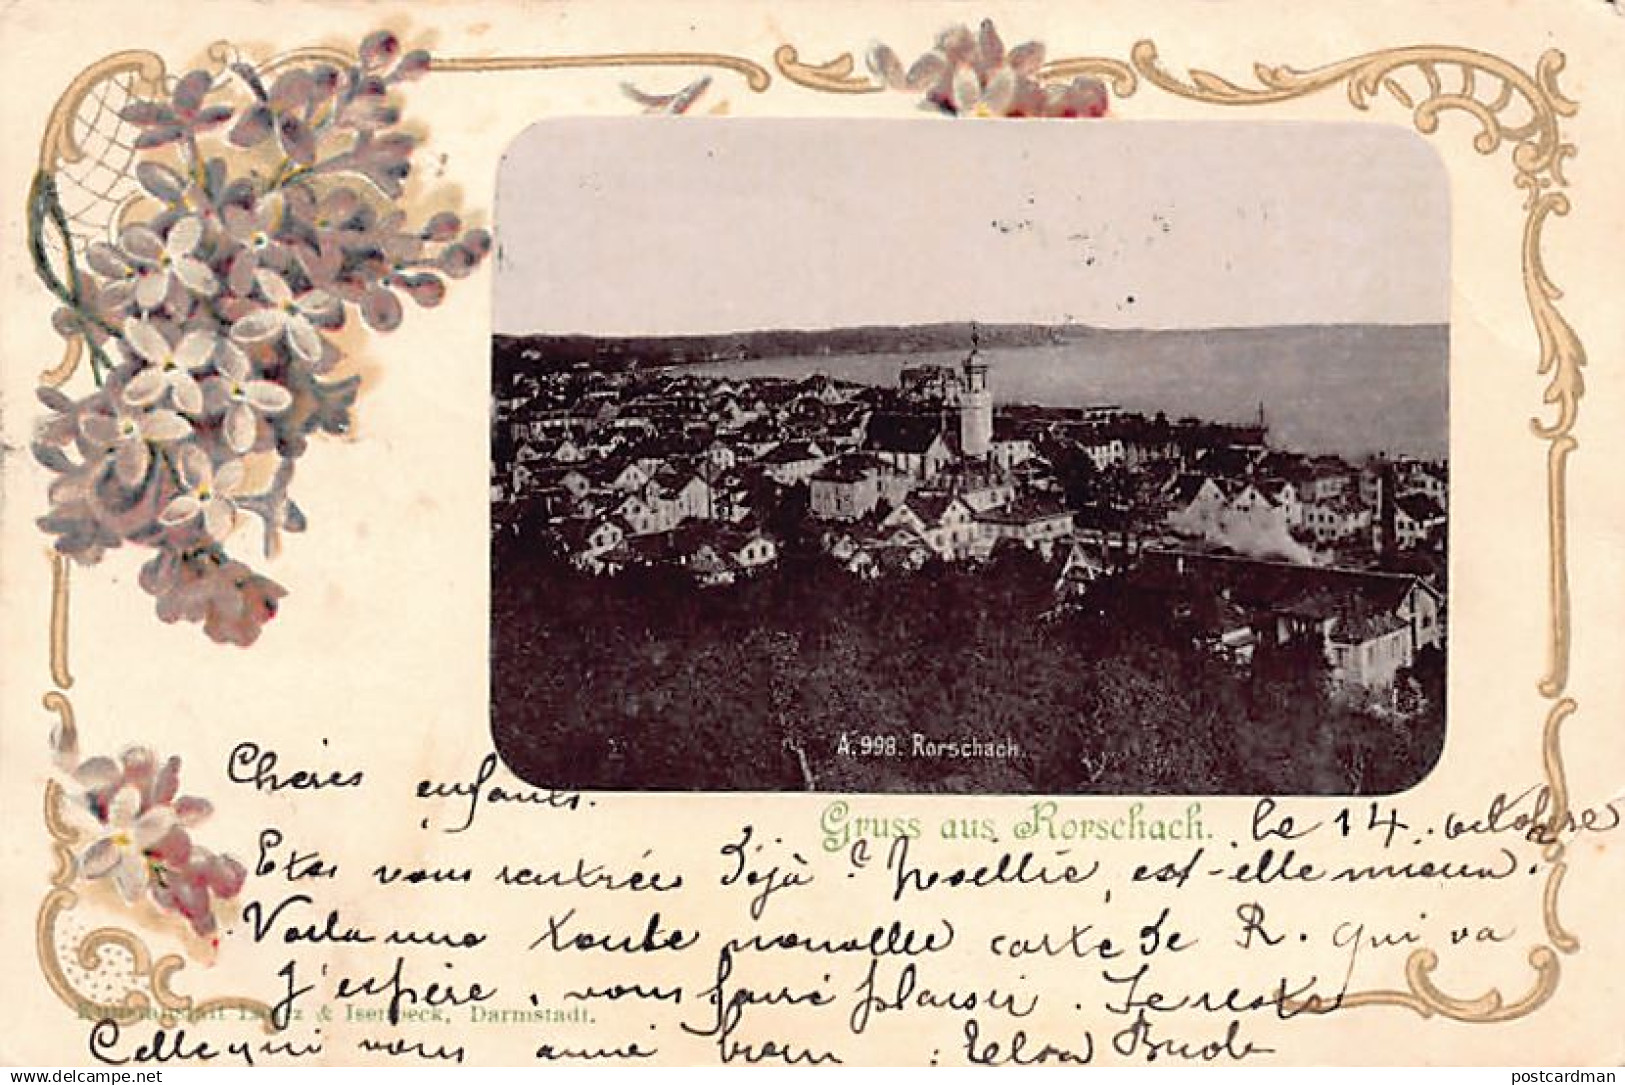 A.998. Rorschach.
Chères enfants.
Gruss aus Rorschach. le 14. octobre
Etes vous rentrées déjà? Noellie, est-elle mieux.
Voila une toute nouvelle carte de R. qui va
j'espère, vous faire plaisir. Je reste
Kunstanstalt Lautz & Isenbeck, Darmstadt.
Celle qui vous aime bien :
postcardman